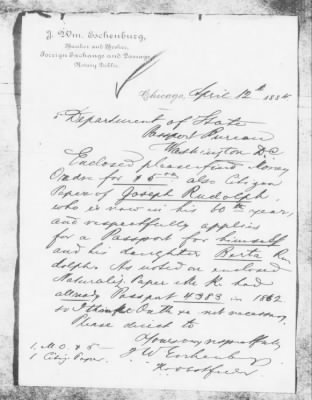 J. Wm. Eschenburg,
Banker and Broker,
Foreign Exchange and Passage
Notary Public.
Chicago, April 12th 1884
Department of State
Passport Bureau
Washington D.C.
Enclosed please find Money
Order for $5.00 also Citizen
Paper of Joseph Rudolph,
who is now in his 60th year,
and respectfully applies
for a Passport for himself
and his daughter Berta Ru
dolph. As noted on enclosed
Naturaliz. Paper Mr R. had
already Passport 4383 in 1862
so I think Oath is not necessary.
Please direct to
Yours very respectfully
J W Eschenburg
1. M.O. $5 —
1 Citiz. Paper.